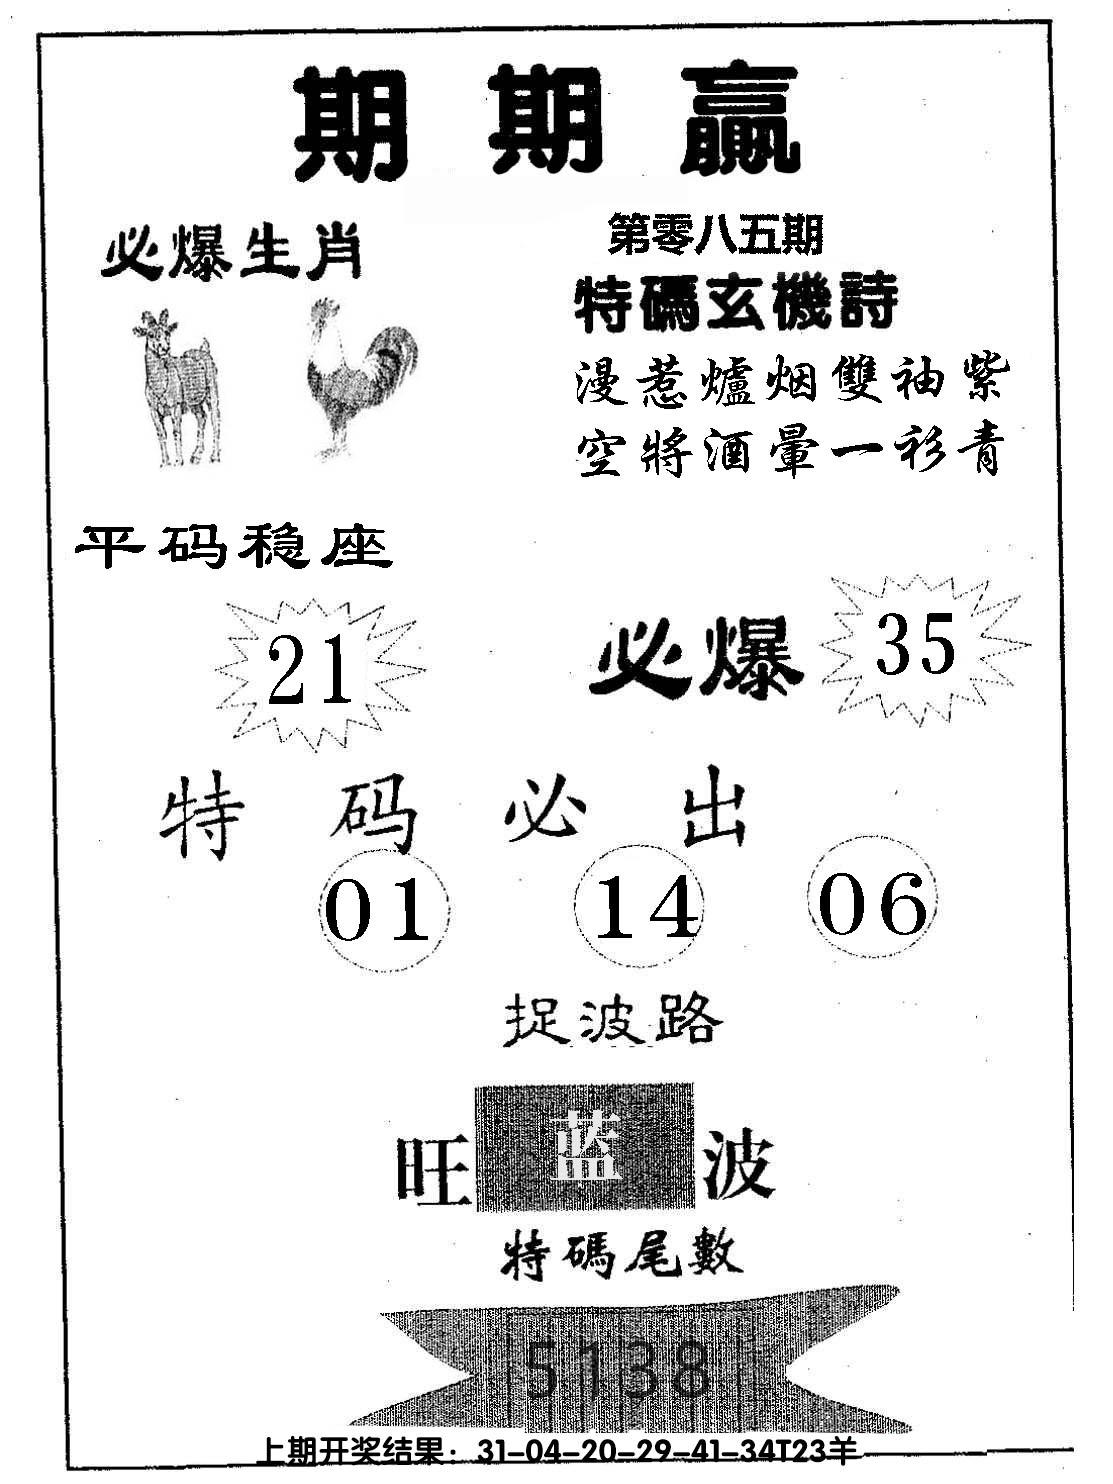 期期赢
必爆生肖
第零八五期
特碼玄機詩
漫惹爐烟雙袖紫
空將酒暈一衫青
平码稳座
21
必爆 35
特码必出
01 14 06
捉波路
旺蓝波
特碼尾數
5138
上期开奖结果：31-04-20-29-41-34T23羊